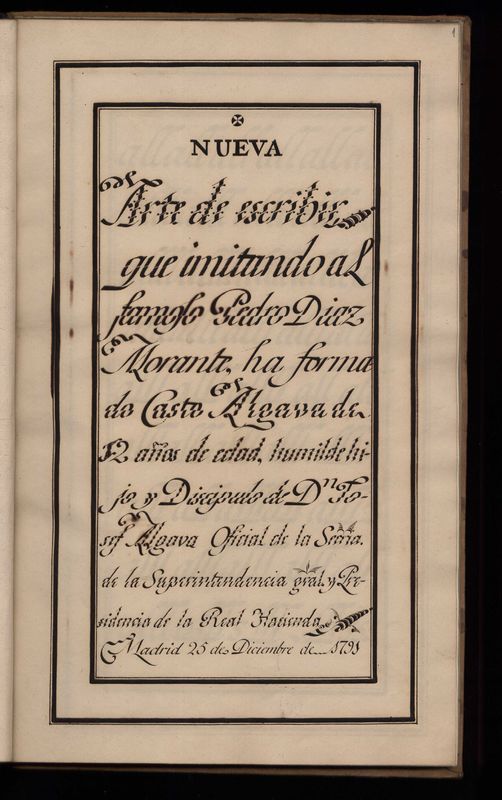 1
NUEVA
Arte de escribir
que imitando al
famoso Pedro Diaz
Morante, ha forma
do Casto Algava de
12 años de edad, humilde hi-
jo y Discipulo de Dⁿ Jo-
sef Algava Oficial de la Secria.
de la Superintendencia gral. y Pre-
sidencia de la Real Hacienda
Madrid 25 de Diciembre de 1791